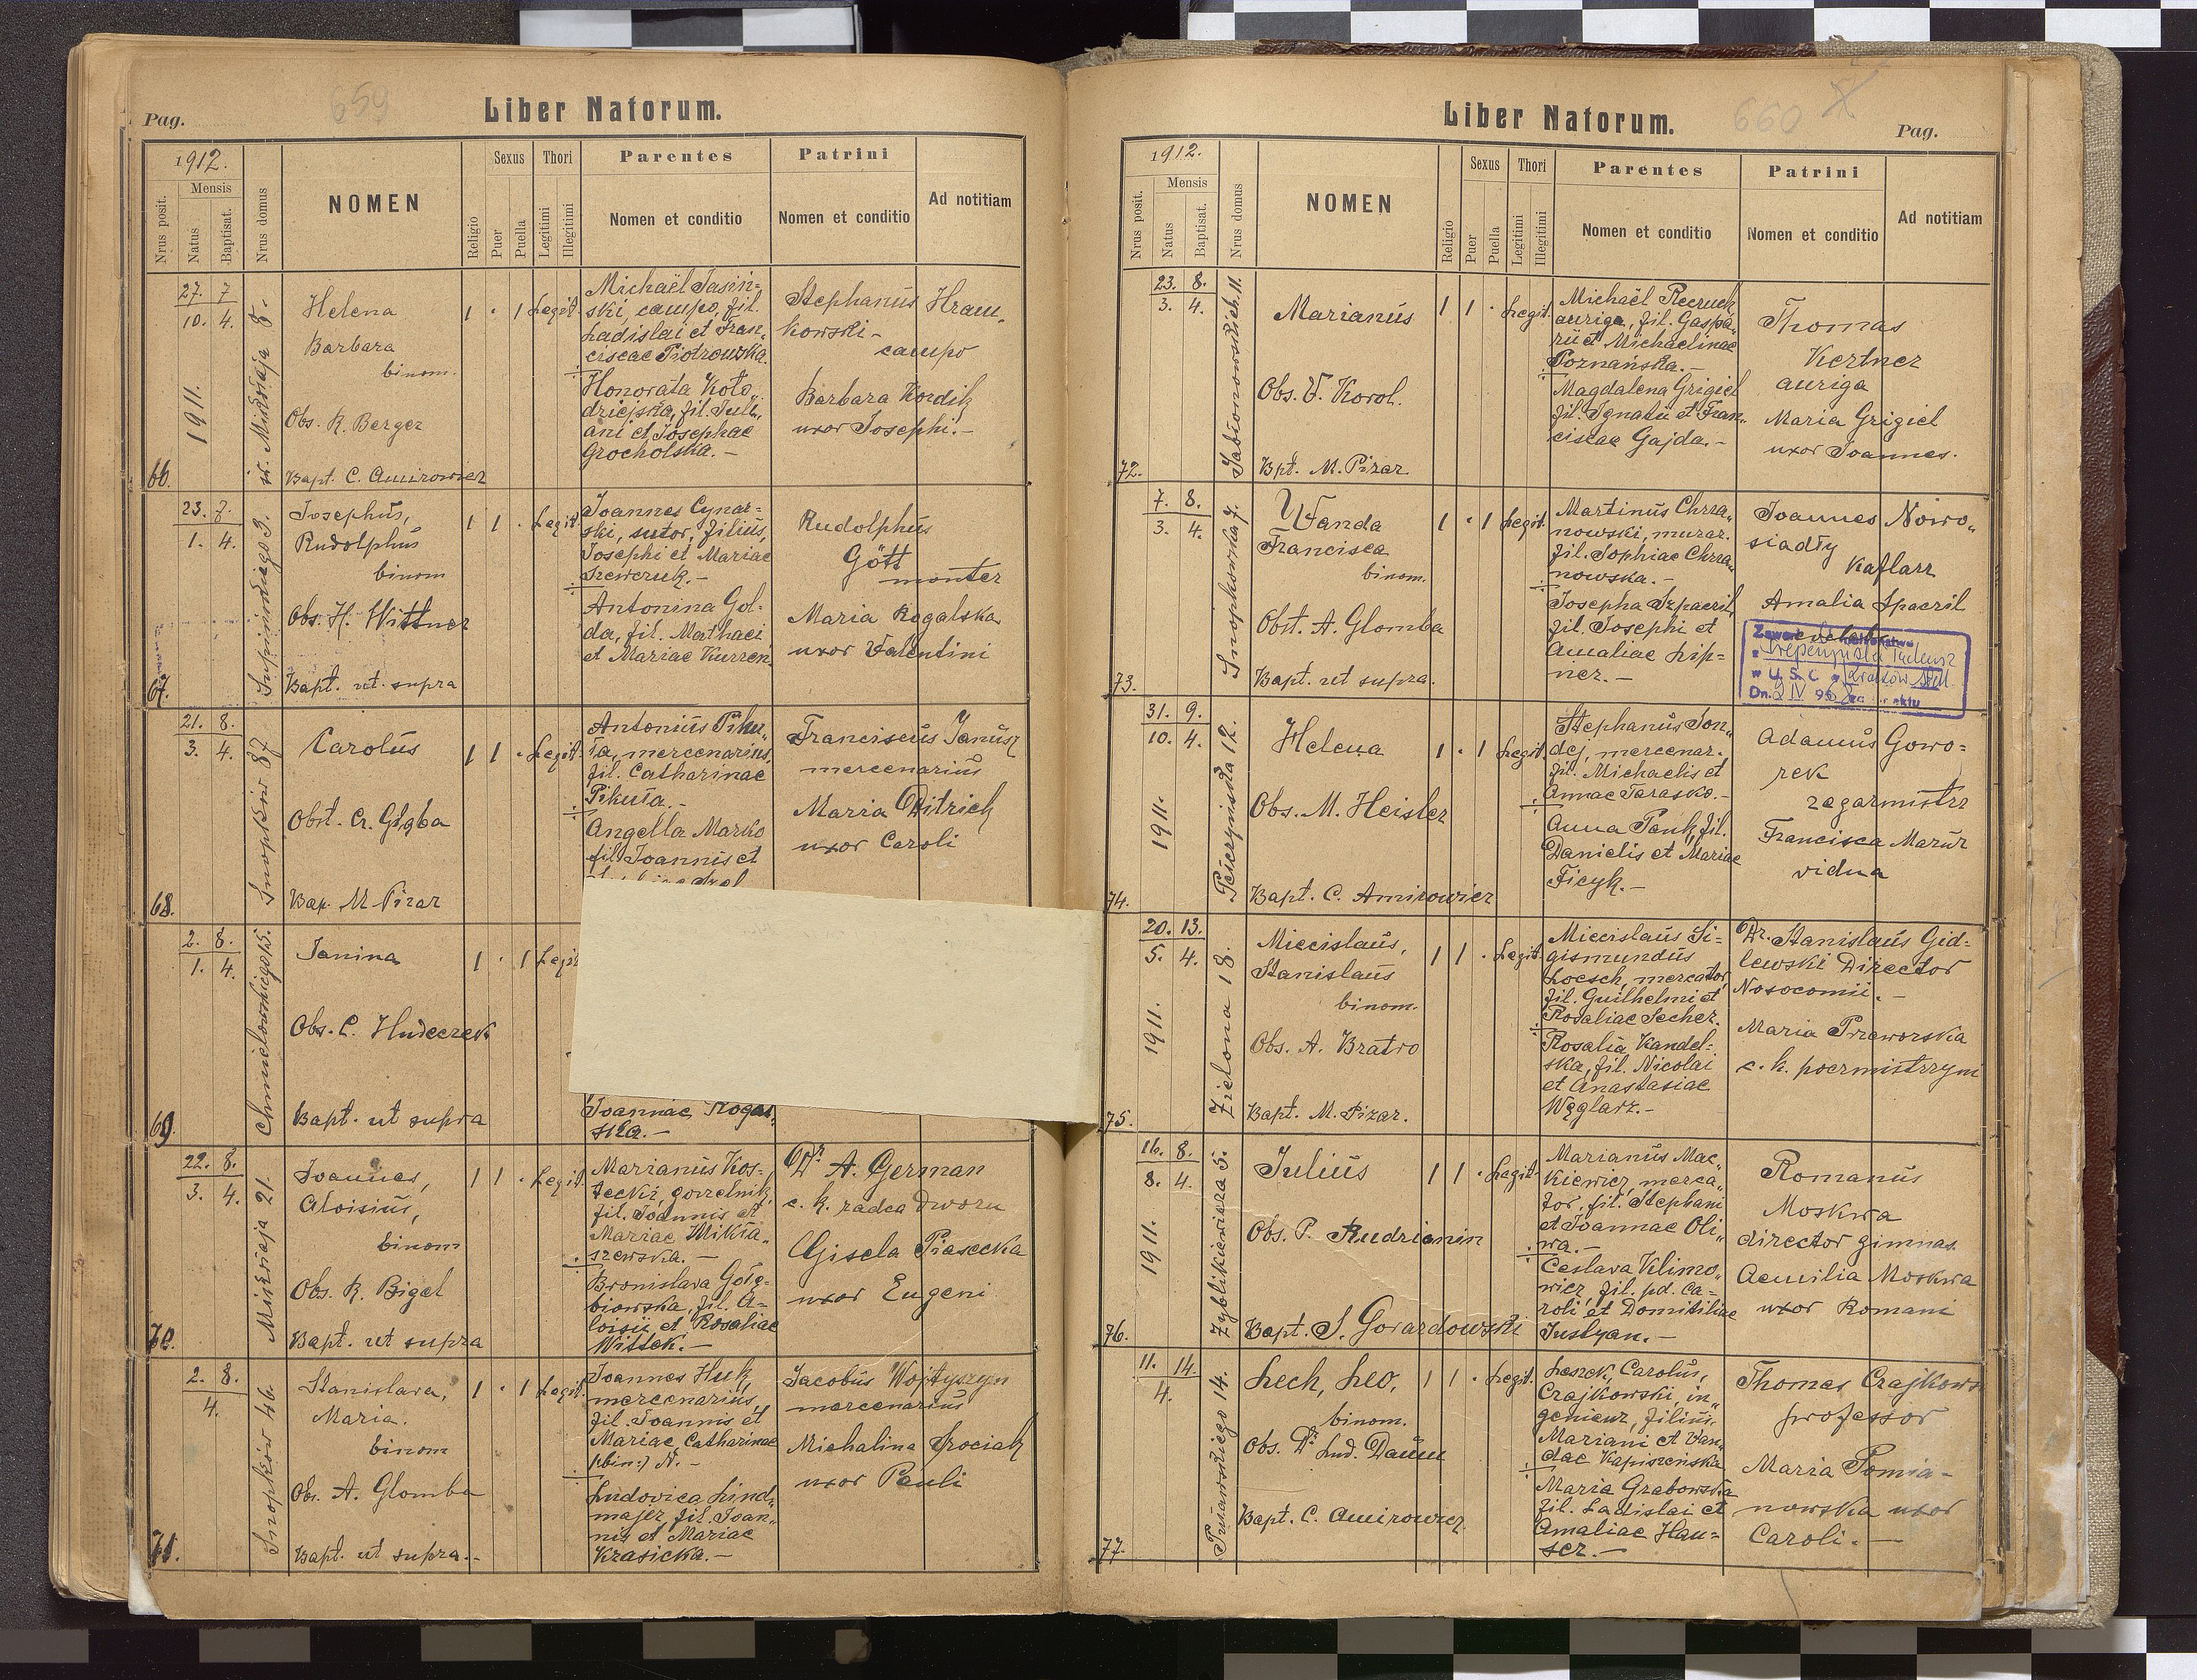 Pag.
659
Liber Natorum.
1912.
Nrus posit.
Mensis
Natus
Baptisat.
Nrus domus
NOMEN
Religio
Sexus
Puer
Puella
Thori
Legitimi
Illegitimi
Parentes
Nomen et conditio
Patrini
Nomen et conditio
Ad notitiam
66.
27. 7
10. 4.
1911.
św. Mikołaja 8.
Helena
Barbara
binom.
Obs. R. Berger
Bapt. C. Amirowicz
1 · 1 Legit.
Michaël Jasiń=
ski, campo, fil.
Ladislai et Fran„
ciscae Piotrowska.
Honorata Koło„
dziejska, fil. Juli„
ani et Josephae
Grocholska. –
Stephanus Hram„
kowski –
campo
Barbara Kordik
uxor Josephi. –
67.
23. 7.
1. 4.
Josephus,
Rudolphus
binom
Obs. H. Wittner
Bapt. ut supra
1 1 · Legit.
Joannes Cynar=
ski, sutor, filius,
Josephi et Mariae
Szewczuk. –
Antonina Gol=
da, fil. Mathaei
et Mariae Kurzen.
Rudolphus
Gött
monter
Maria Rogalska
uxor Valentini
68.
21. 8.
3. 4.
Snopków 37
Carolus
Obst. A. Gląba
Bap. M Pizar
1 1 · Legit.
Antonius Piku„
ła, mercenarius,
fil. Catharinae
Pikuła. –
Angella Marko
fil. Joannis et
Franciscus Janusz
mercenarius
Maria Ditrich
uxor Caroli
69.
2. 8.
1. 4.
Chmielowskiego 15.
Janina
Obs. C. Hudeczek
Bapt. ut supra
1 · 1 Legit
Joannae Rogal„
ska. –
70.
22. 8.
3. 4.
Mikołaja 21.
Joannes,
Aloisius,
binom
Obs. R. Bigel
Bapt. ut supra
1 1 · Legit.
Marianus Kos„
tecki, gorzelnik,
fil. Joannis et
Mariae Mikła„
szewska. –
Bronislava Gołę=
biowska, fil. A=
loisii et Rosaliae
Wittek. –
Dr A. German
c. k. radca Dworu
Gisela Piasecka
uxor Eugeni
71.
2. 8.
4.
Snopków 46.
Stanislava,
Maria.
binom
Ob. A. Glomba
Bapt. ut supra. –
1 · 1 Legit.
Joannes Huk,
mercenarius,
fil. Joannis et
Mariae Catharinae
(bin:) N. –
Ludovica Lind„
majer, fil. Joan„
nis et Mariae
Krasicka. –
Jacobus Wojtyszyn
mercenarius
Michalina Srociak
uxor Pauli
Liber Natorum.
660
Pag.
1912.
Nrus posit.
Mensis
Natus
Baptisat.
Nrus domus
NOMEN
Religio
Sexus
Puer
Puella
Thori
Legitimi
Illegitimi
Parentes
Nomen et conditio
Patrini
Nomen et conditio
Ad notitiam
72.
23. 8.
3. 4.
Jabłonowskich 11.
Marianus
Obs. V. Korol.
Bpt. M. Pizar
1 1 · Legit.
auriga, fil. Gaspa„
rii et Michaelinae
Poznańska. –
Magdalena Grigiel
fil. Ignatii et Fran„
ciscae Gajda. –
Thomas
Kertner
auriga
Maria Grigiel
uxor Joannes.
73.
7. 8.
3. 4.
Snopkowska 7.
Wanda
Francisca
binom.
Obst. A. Glomba
Bapt. ut supra.
1 · 1 Legit.
Martinus Chrza„
nowski, murar.
fil. Sophiae Chrza„
nowska. –
Josepha Szpaczil
fil. Josephi et
Amaliae Lip=
ner. –
Joannes Nowo„
siadły
Kaflarz
Amalia Spaczil
74.
31. 9.
10. 4.
1911.
Helena
Obs. M. Heisler
Bapt. C. Amirowicz
1 · 1 Legit.
Stephanus Son„
dej, mercenar.
fil. Michaelis et
Annae Tarasko. –
Anna Pank, fil.
Danielis et Mariae
Ficyk. –
Adamus Gowo=
rek
zegarmistrz
Francisca Mazur
vidua
75.
20. 13.
5. 4.
1911.
Zielona 18.
Miecislaus,
Stanislaus
binom.
Obs. A. Bratro
Bapt. M. Pizar.
1 1 · Legit.
Miecislaus Si=
gismundus
Loesch, mercator,
fil. Guilhelmi et
Rosaliae Secher.
Rosalia Kandel=
ska, fil. Nicolai
et Anastasiae
Węglarz. –
Dr. Stanislaus Gid=
lewski Director
Nosocomii. –
Maria Przeworska
c. k. poczmistrzyni
76.
16. 8.
8. 4.
1911.
Zyblikiewicza 5.
Julius
Obs. P. Rudzianin
Bapt. S. Gorardowski
1 1 · Legit.
Marianus Mac„
kiewicz, merca„
tor, fil. Stephani
et Joannae Oli„
wa. –
Ceslava Klimo„
wicz, fil. pd. Ca=
roli et Domitiliae
Justyan. –
Romanus
Moskwa
director gimnas.
Aemilia Moskwa
uxor Romani
77.
11. 14.
4.
Pułaskiego 14.
Lech, Leo,
binom.
Obs. Dr Lud. Daum
Bapt. C. Amirowicz
1 1 · Legit.
Leszek, Carolus,
Czajkowski, in„
genieur, filius
Mariani et Van„
dae Kapiszewska
Maria Grabowska
fil. Ladislai et
Amaliae Hau=
ser. –
Thomas Czajkows
professor
Maria Pomia–
nowska uxor
Caroli. –